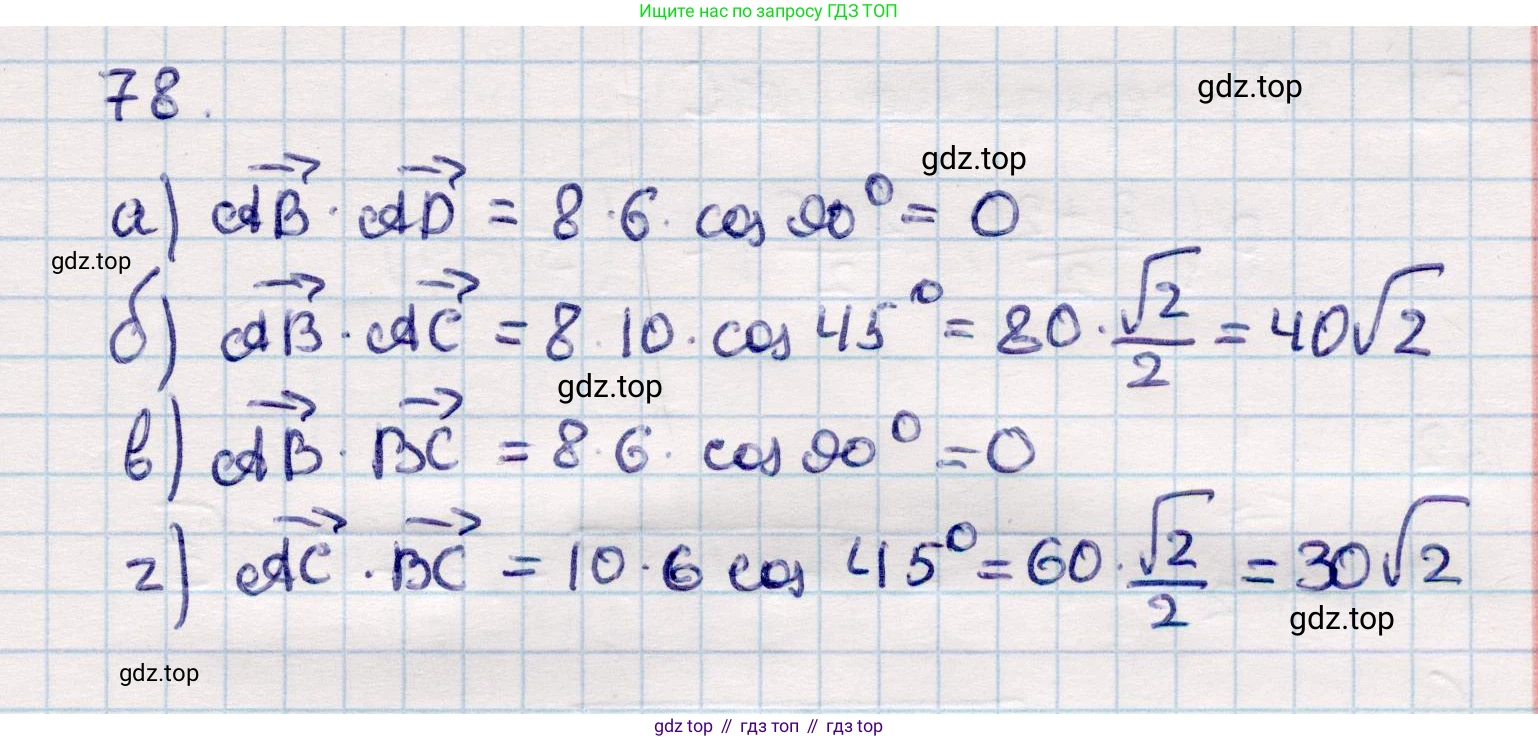 Ищите нас по запросу ГДЗ ТОП
78.
gdz.top
gdz.top
а) AB⃗ · AD⃗ = 8 · 6 · cos 90° = 0
gdz.top
б) AB⃗ · AC⃗ = 8 · 10 · cos 45° = 80 · √2/2 = 40√2
gdz.top
в) AB⃗ · BC⃗ = 8 · 6 · cos 90° = 0
г) AC⃗ · BC⃗ = 10 · 6 cos 45° = 60 · √2/2 = 30√2
gdz.top
gdz.top
gdz top // гдз топ // гдз top